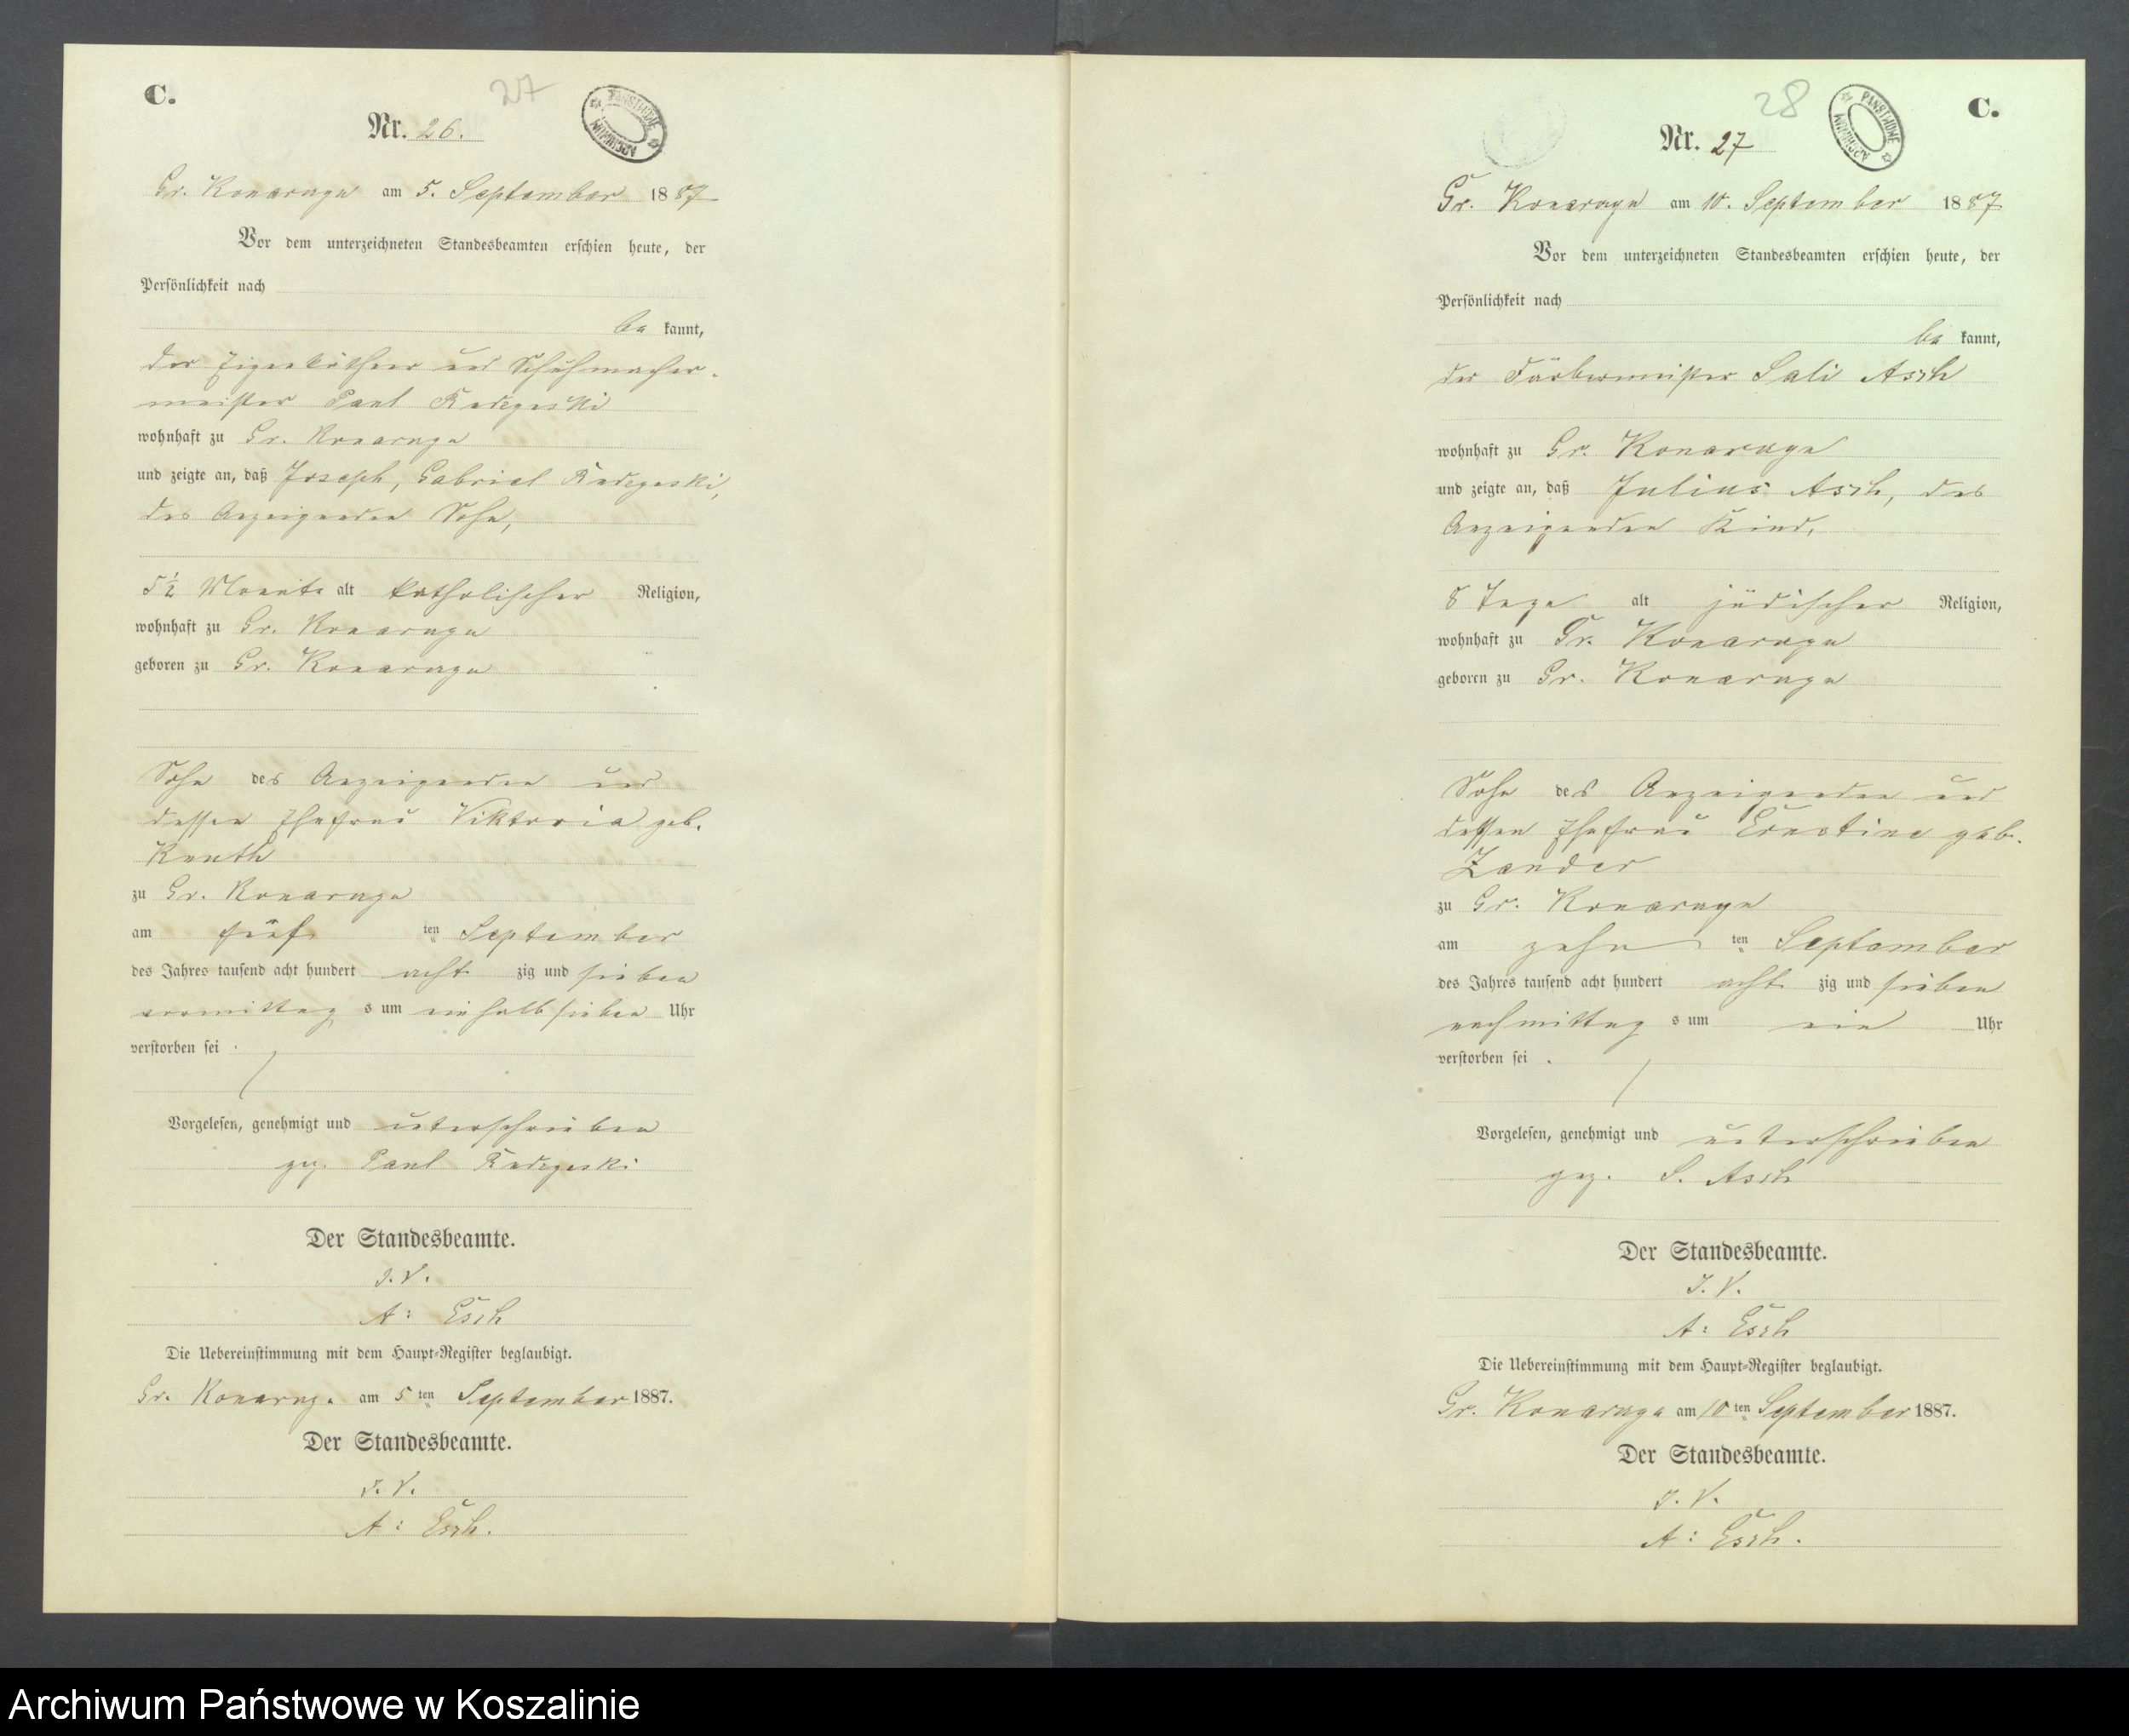 C.
27
Nr. 26.
PAŃSTWOWE ARCHIWUM
Gr. Konarzyn am 5. September 1887
Vor dem unterzeichneten Standesbeamten erschien heute, der
Persönlichkeit nach
be kannt,
der Eigenkäthner und Schuhmacher-
meister Paul
wohnhaft zu Gr. Konarzyn
und zeigte an, daß Joseph, Gabriel
des Anzeigenden Sohn,
5½ Monate alt katholischer Religion,
wohnhaft zu Gr. Konarzyn
geboren zu Gr. Konarzyn
Sohn des Anzeigenden und
dessen Ehefrau Viktoria geb.
Knuth
zu Gr. Konarzyn
am fünf ten September
des Jahres tausend acht hundert acht zig und sieben
vormittag s um einhalb sieben Uhr
verstorben sei .
Vorgelesen, genehmigt und unterschrieben
gez. Paul
Der Standesbeamte.
I. V.
A: Esch
Die Uebereinstimmung mit dem Haupt-Register beglaubigt.
Gr. Konarzyn am 5 ten September 1887.
Der Standesbeamte.
I. V.
A: Esch.
28
C.
Nr. 27
PAŃSTWOWE ARCHIWUM
Gr. Konarzyn am 10. September 1887
Vor dem unterzeichneten Standesbeamten erschien heute, der
Persönlichkeit nach
be kannt,
der Färbermeister Sali Asch
wohnhaft zu Gr. Konarzyn
und zeigte an, daß Julius Asch, des
Anzeigenden Kind,
8 Tage alt jüdischer Religion,
wohnhaft zu Gr. Konarzyn
geboren zu Gr. Konarzyn
Sohn des Anzeigenden und
dessen Ehefrau Ernstine geb.
Zander
zu Gr. Konarzyn
am zehn ten September
des Jahres tausend acht hundert acht zig und sieben
nachmittag s um ein Uhr
verstorben sei .
Vorgelesen, genehmigt und unterschrieben
gez. S. Asch
Der Standesbeamte.
I. V.
A: Esch
Die Uebereinstimmung mit dem Haupt-Register beglaubigt.
Gr. Konarzyn am 10 ten September 1887.
Der Standesbeamte.
I. V.
A: Esch.
Archiwum Państwowe w Koszalinie